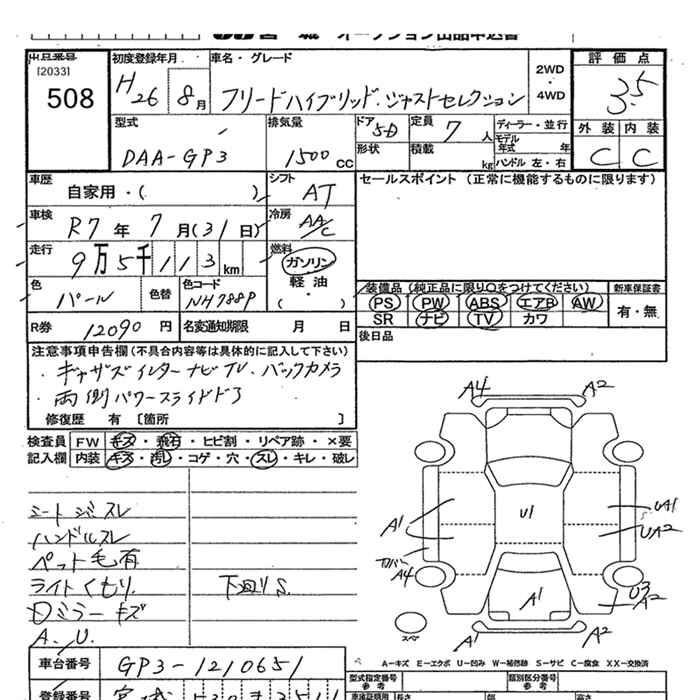 出品番号
[2033]
508
初度登録年月
H26 8月
車名・グレード
フリードハイブリッド・ジャストセレクション
2WD・4WD
評価点
3.5
外装 内装
C C
型式
DAA-GP3
排気量
1500 CC
ドア 5D
形状
定員 7人
積載 kg
ディーラー・並行
モデル年式 年
ハンドル 左・右
車歴
自家用・( )
シフト
AT
セールスポイント (正常に機能するものに限ります)
車検
R7年7月(31日)
冷房
AA/C
走行
9万5千113km
燃料
ガソリン
軽油
・( )
色
パール
色替
色コード
NH788P
装備品(純正品に限り○をつけてください)
PS PW ABS エアB AW
SR ナビ TV カワ
新車保証書
有・無
R券 12090円
名変通知期限 月 日
後日品
注意事項申告欄(不具合内容等は具体的に記入して下さい)
・ギャザズインターナビTV、バックカメラ
・両側パワースライドドア
修復歴 有 [箇所 ]
検査員 FW キズ・飛石・ヒビ割・リペア跡・×要
記入欄 内装 キズ・汚レ・コゲ・穴・スレ・キレ・破レ
シートシミスレ
ハンドルスレ
ペット毛有
ライトくもり. 下廻りS.
Dミラーキズ
A. U.
A4 A2
A1 U1 UA1
UA2
A4
A1 U3
A2
スペア
A1 A2
A-キズ E-エクボ U-凹み W-補修跡 S-サビ C-腐食 XX-交換済
車台番号 GP3-1210651
登録番号
型式指定番号
参考
類別区分番号
参考